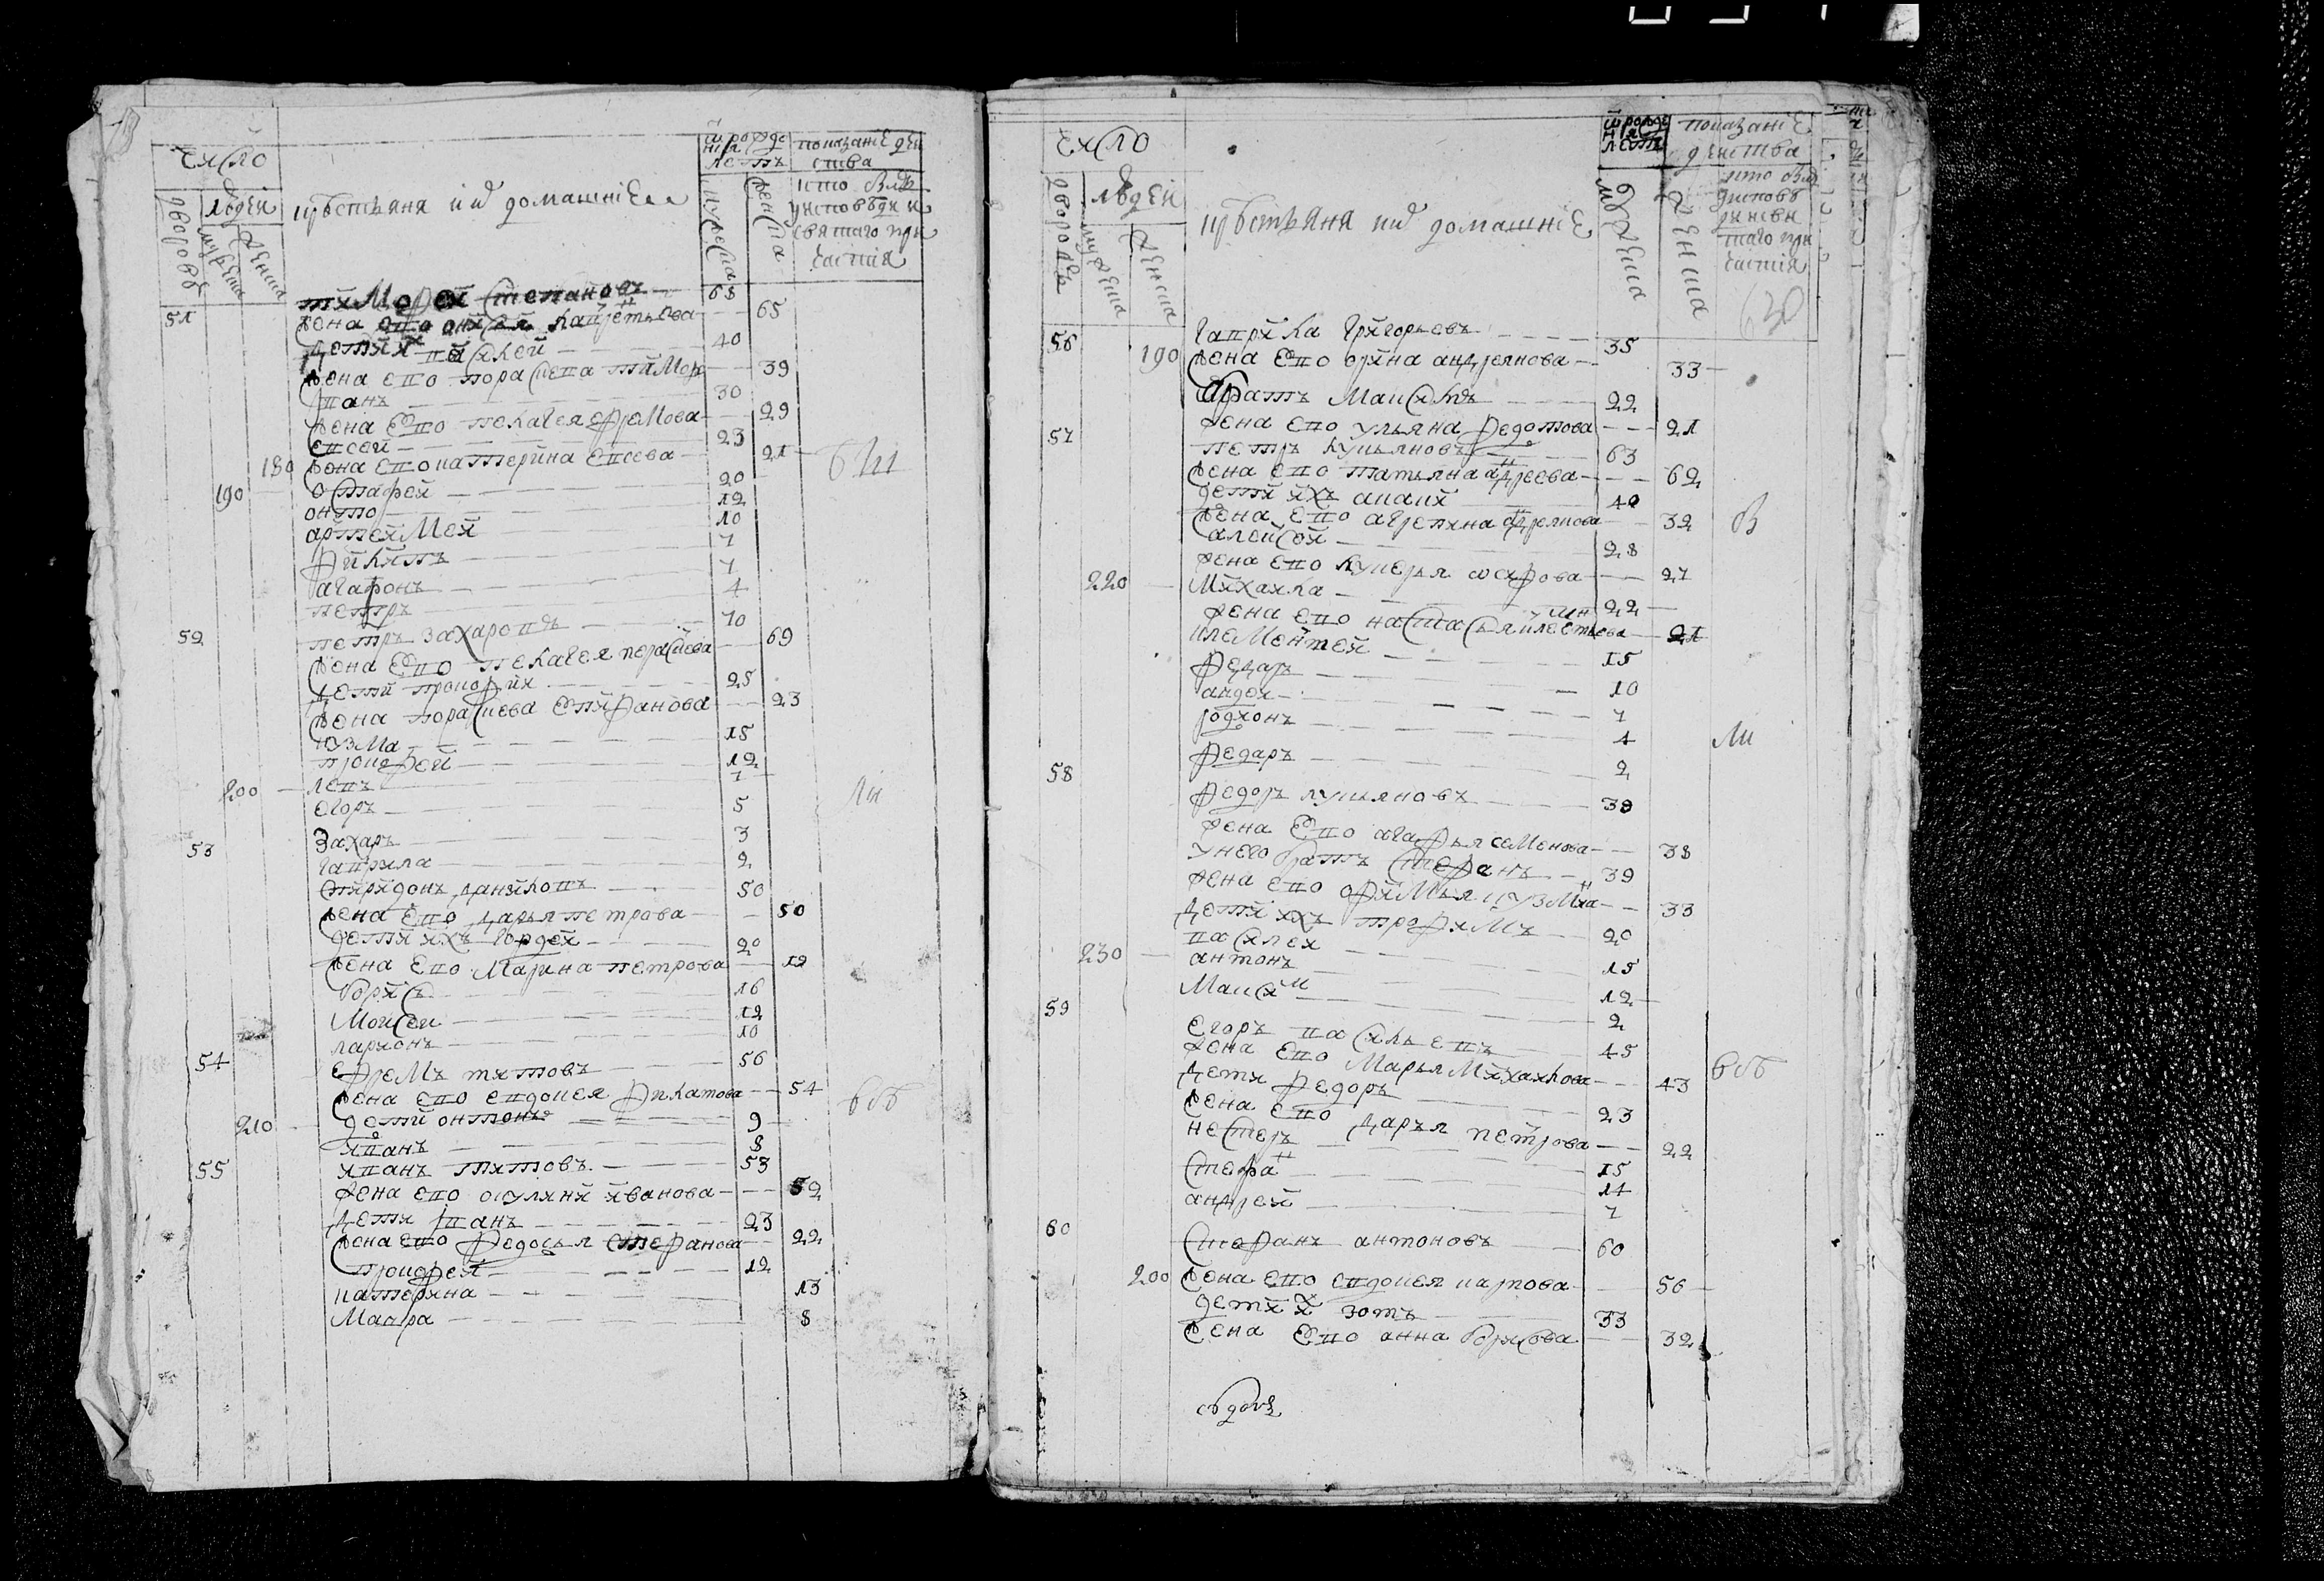 Число
дворовъ
людей
мужеска
женска
крестьяня и их домашние
от рождения лета
мужеска
женска
показание действа
кто был у исповеди и святаго причастия
51 тимофей степановъ 68
жена его 65
дети их василей 40
жена его парасковея тимоф 39
иванъ 30
жена его пелагея ефремова 29
евсей 23
180 жена его катерина евсева 21
190 остафей 20
онто 12
артемей 10
филипъ 7
агафонъ 7
петръ 4
52 петръ захаровъ 70
жена его пелагея 69
дети прокофии 25
жена парасковея епифанова 23
кузма 15
ерофей 12
200 левъ 7
егоръ 5
захаръ 3
53 гаврила 2
спиридонъ даниловъ 50
жена его дарья петрова 50
дети ихъ гордей 20
жена его марина петрова 19
борисъ 16
моисеи 12
ларионъ 10
54 ефремъ титовъ 56
жена его евдокея филатова 54
210 дети онтонъ 9
иванъ 8
55 иванъ титовъ 53
жена его окулина иванова 52
дети иванъ 23
жена его федосья стефанова 22
ерофей 12
катерина 13
мавра 8
Число
дворовъ
людей
мужеска
женска
крестьяня их домашние
от рождения лета
мужеска
женска
показание действа
630
56 гаврила григорьевъ 35
190 жена его орина андреянова 33
братъ максимъ 22
жена его ульяна федотова 21
57 петръ лукьяновъ 63
жена его татьяна андреева 62
дети ихъ 40
жена его агрепина андреянова 39
алексей 28
жена его лукерья 27
220 михаила 22
жена его настасья 21
клементей 15
федаръ 10
андей 7
родионъ 4
федаръ 2
58 федоръ лукьяновъ 39
жена его агафья семенова 38
у него братъ стефанъ 39
жена его офимья кузмина 33
дети ихъ трофимъ 20
василеи 15
230 антонъ 12
максим 2
59 егоръ васильевъ 45
жена его марья михаилова 43
дети федоръ 23
жена его дарья петрова 22
нестеръ 15
стефан 14
андрей 7
60 стефанъ антоновъ 60
200 жена его евдокея карпова 56
дети их зотъ 33
жена его анна борисова 32